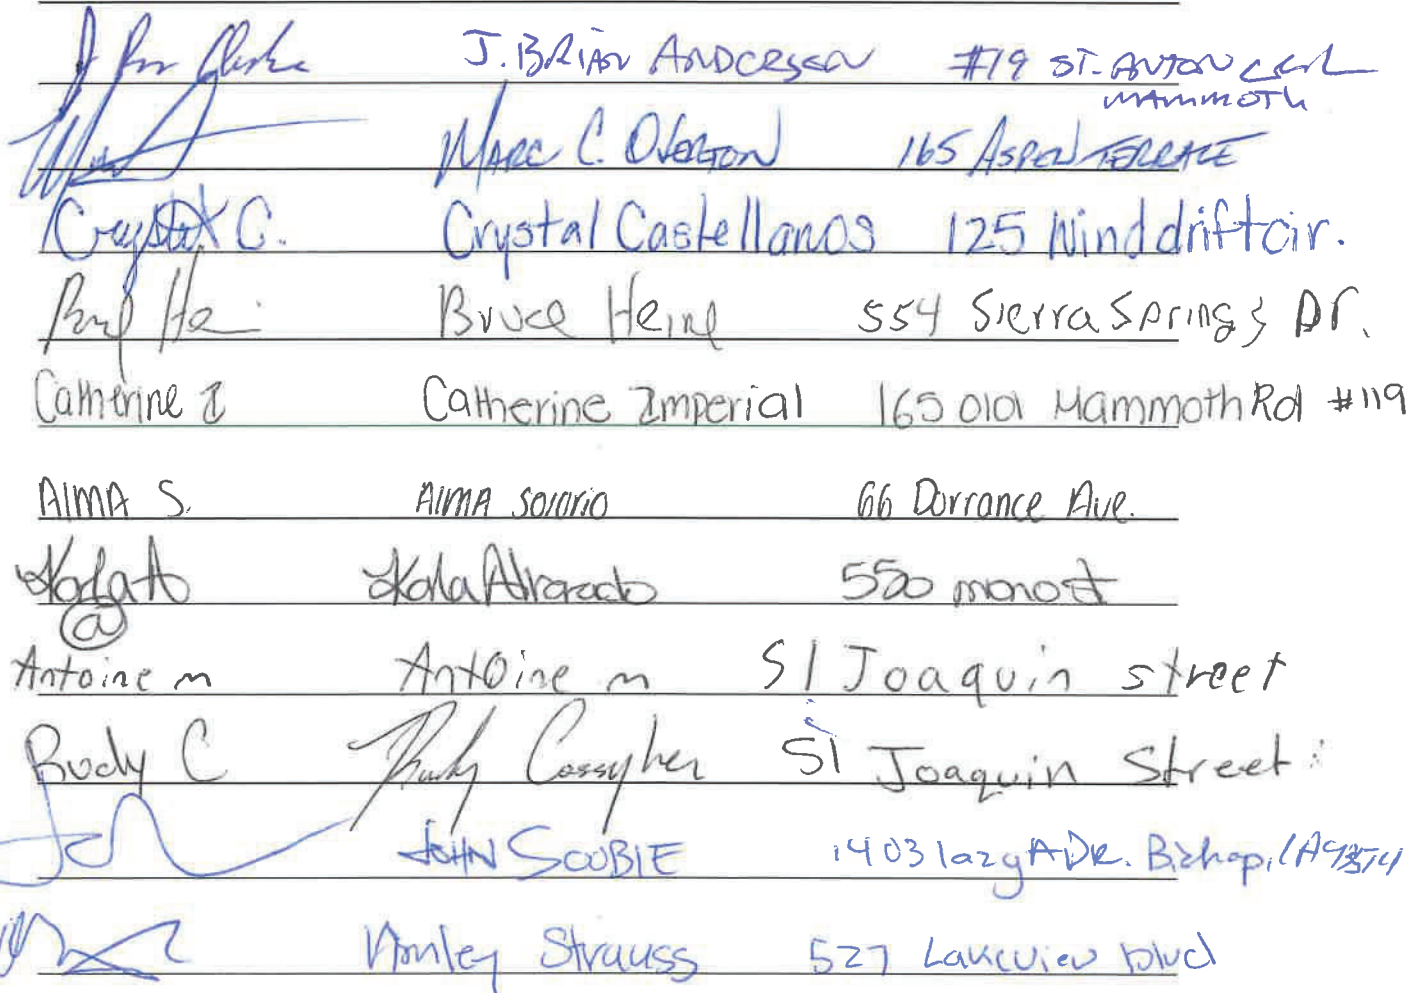 J. BRIAN ANDERSEN #19 ST. ANTON
MAMMOTH
MARC C. OVERTON 165 ASPEN TERRACE
Crystal C. Crystal Castellanos 125 Winddrift cir.
Bruce Heine 554 Sierra Springs Dr.
Catherine I Catherine Imperial 165 Old Mammoth Rd #119
AlMA S. AlMA Solorio 66 Dorrance Ave.
Karla A Karla Alvarado 550 mono st
@
Antoine m Antoine m 51 Joaquin street
Rudy C Rudy 51 Joaquin Street
JOHN SCOBIE 1403 lazy A DR. Bishop, CA 93514
Strauss 527 Lakeview blvd